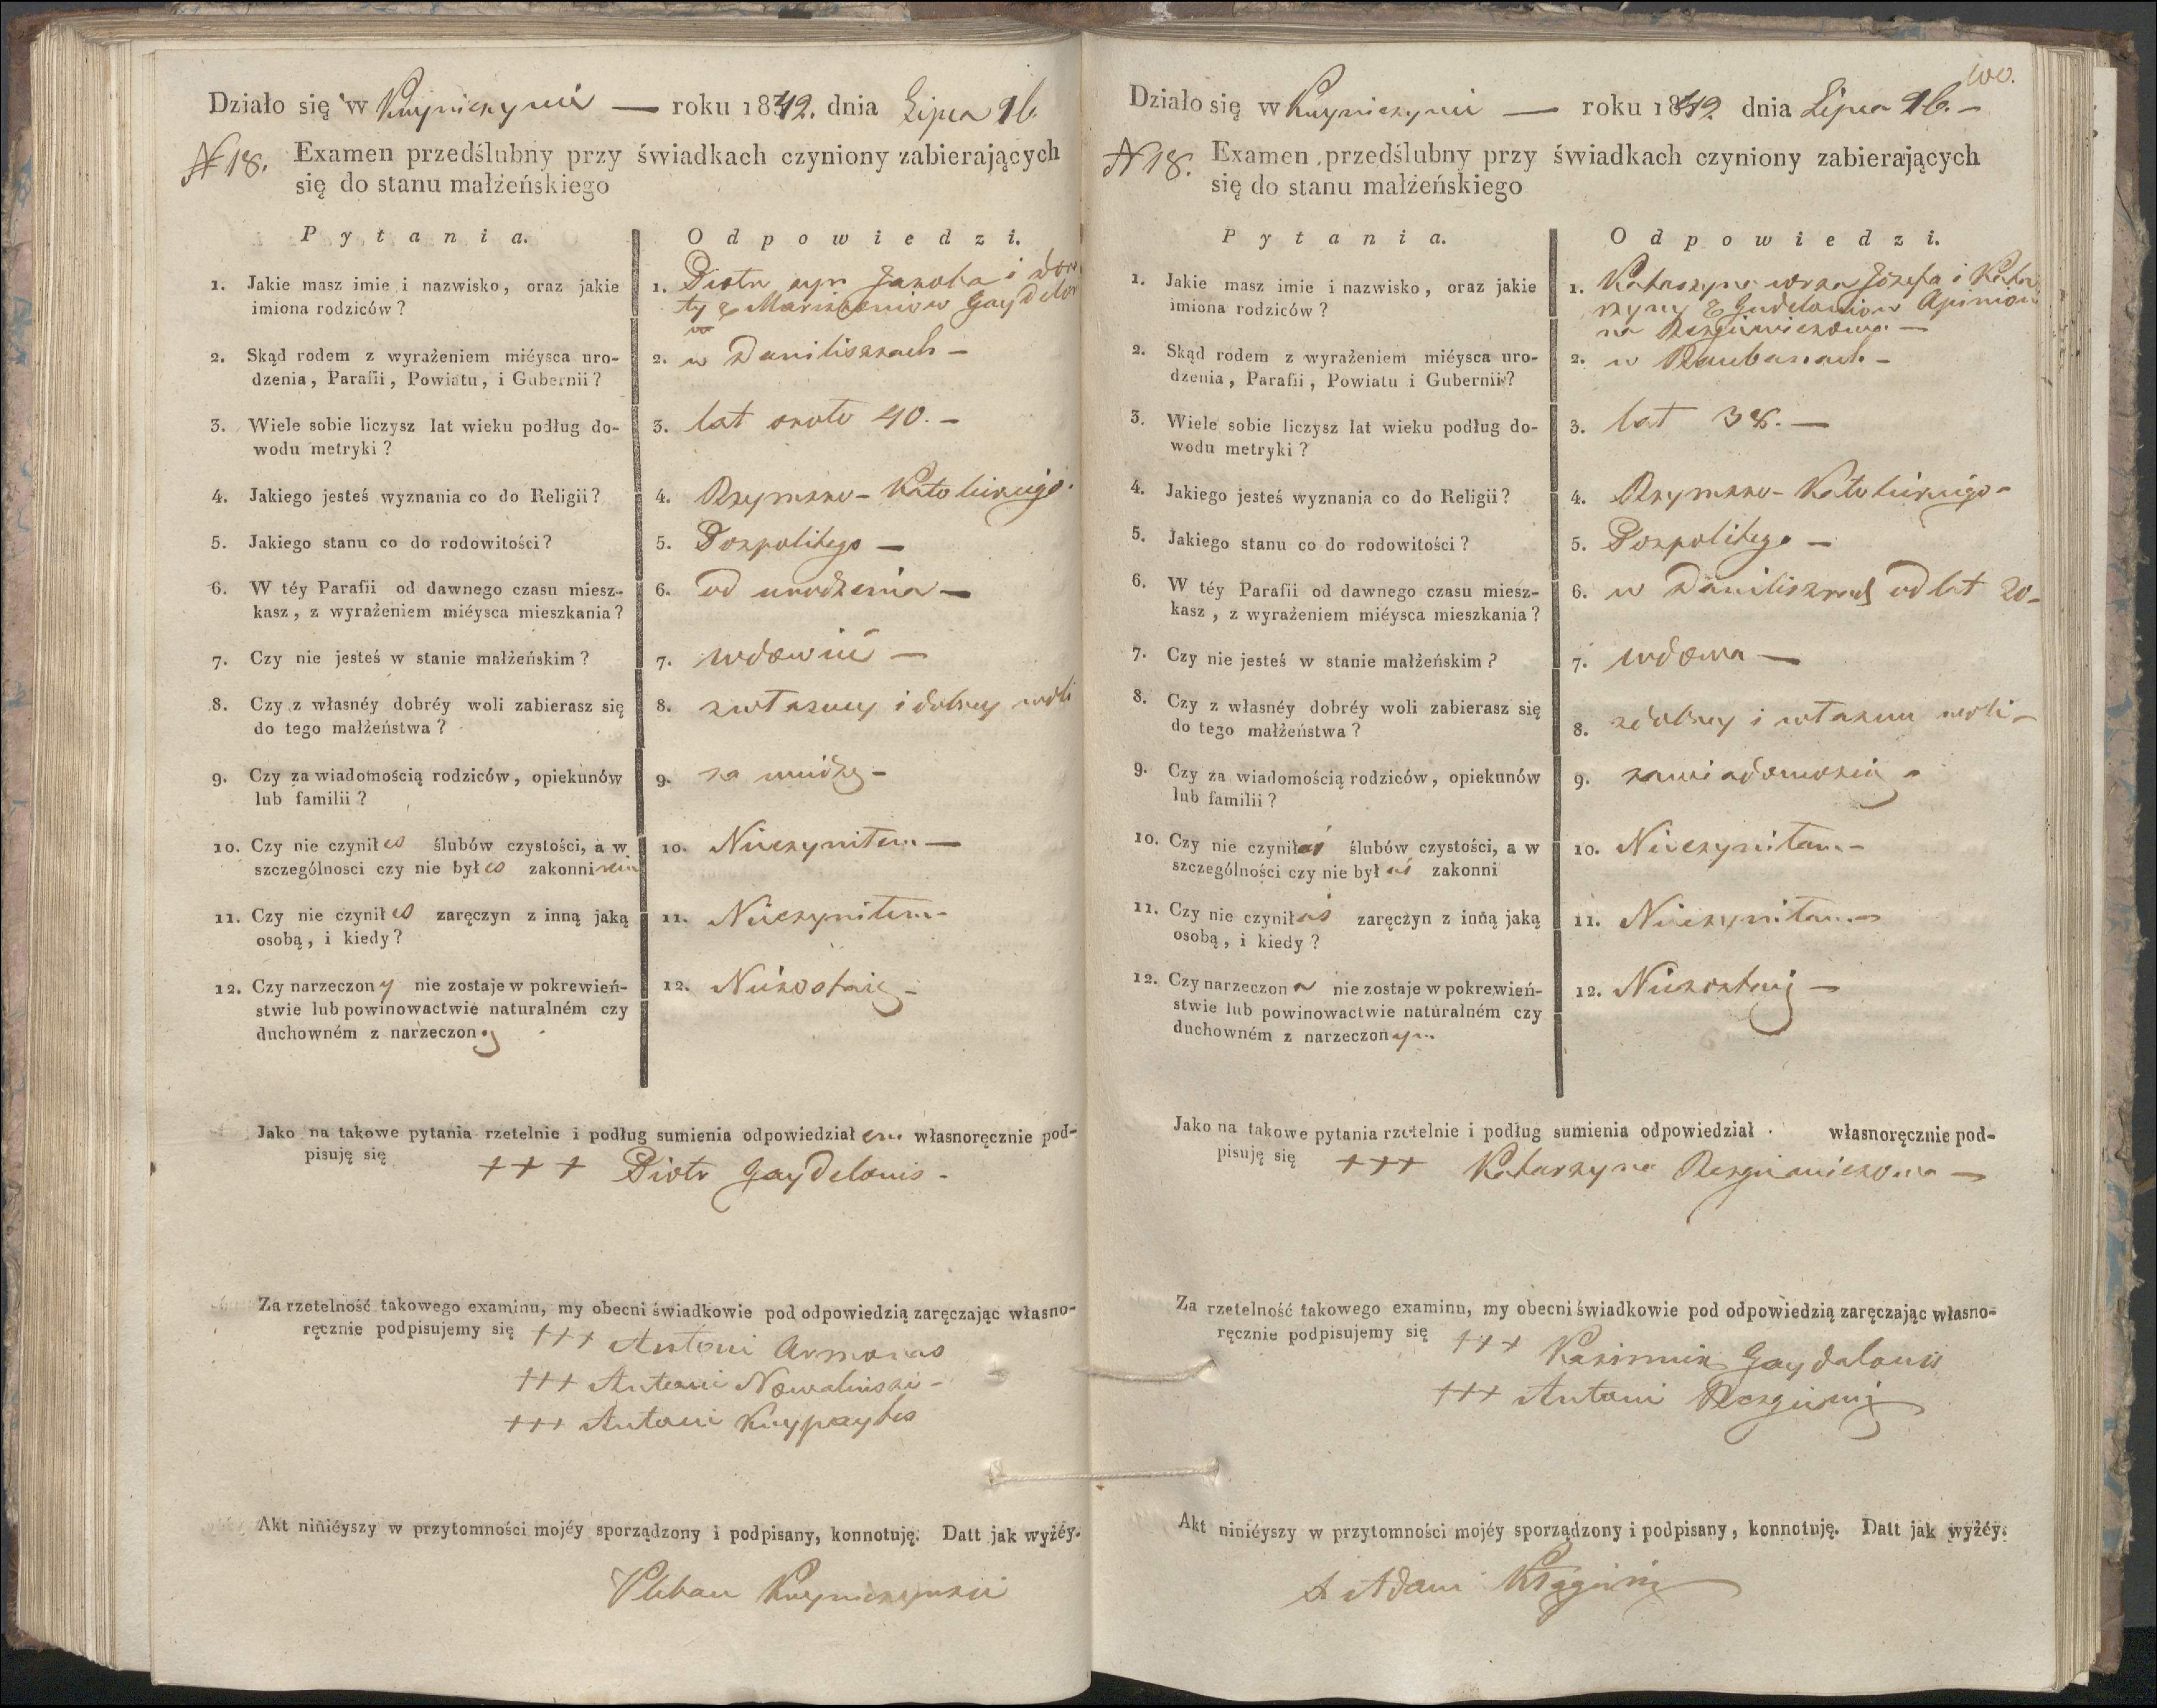 Działo się w Kryniczynie — roku 1842. dnia Lipca 26.
N 18. Examen przedślubny przy świadkach czyniony zabierających
się do stanu małżeńskiego
Pytania. Odpowiedzi.
1. Jakie masz imie i nazwisko, oraz jakie
imiona rodziców?
1. Piotr syn Jakoba i Doro
ty z
2. Skąd rodem z wyrażeniem miéysca uro-
dzenia, Parafii, Powiatu, i Gubernii?
2. w Daniliszkach —
3. Wiele sobie liczysz lat wieku podług do-
wodu metryki?
3. lat około 40. —
4. Jakiego jesteś wyznania co do Religii?
4. Rzymsko-Katolickiego.
5. Jakiego stanu co do rodowitości?
5. Pospolitego —
6. W téy Parafii od dawnego czasu miesz-
kasz, z wyrażeniem miéysca mieszkania?
6. od urodzenia —
7. Czy nie jesteś w stanie małżeńskim?
7. wdowiec —
8. Czy z własnéy dobréy woli zabierasz się
do tego małżeństwa?
8. z własney i dobrey woli
9. Czy za wiadomością rodziców, opiekunów
lub familii?
9. za wiedzą —
10. Czy nie czyniłes ślubów czystości, a w
szczególnosci czy nie byłes zakonnikiem
10. Nieczyniłem —
11. Czy nie czyniłes zaręczyn z inną jaką
osobą, i kiedy?
11. Nieczyniłem —
12. Czy narzeczony nie zostaje w pokrewień-
stwie lub powinowactwie naturalném czy
duchowném z narzeczoną
12. Niezostaię —
Jako na takowe pytania rzetelnie i podług sumienia odpowiedziałem własnoręcznie pod-
pisuję się +++ Piotr Gaydelonis —
Za rzetelność takowego examinu, my obecni świadkowie pod odpowiedzią zaręczając własno-
ręcznie podpisujemy się +++ Antoni Armonas
+++ Antoni Nowaliński —
+++ Antoni Knypaytes
Akt niniéyszy w przytomności mojéy sporządzony i podpisany, konnotuję. Datt jak wyżéy.
Pleban
100.
Działo się w Kryniczynie — roku 1842 dnia Lipca 26. —
N 18. Examen przedślubny przy świadkach czyniony zabierających
się do stanu małżeńskiego
Pytania. Odpowiedzi.
1. Jakie masz imie i nazwisko, oraz jakie
imiona rodziców?
1. Katarzyna córka Józefa i Kata
rzyny
2. Skąd rodem z wyrażeniem miéysca uro-
dzenia, Parafii, Powiatu i Gubernii?
2. w
3. Wiele sobie liczysz lat wieku podług do-
wodu metryki?
3. lat 38. —
4. Jakiego jesteś wyznania co do Religii?
4. Rzymsko-Katolickiego —
5. Jakiego stanu co do rodowitości?
5. Pospolitego —
6. W téy Parafii od dawnego czasu miesz-
kasz, z wyrażeniem miéysca mieszkania?
6. w Daniliszkach od lat 20 —
7. Czy nie jesteś w stanie małżeńskim?
7. wdowa —
8. Czy z własnéy dobréy woli zabierasz się
do tego małżeństwa?
8. z dobrey i własney woli —
9. Czy za wiadomością rodziców, opiekunów
lub familii?
9. za wiadomością —
10. Czy nie czyniłaś ślubów czystości, a w
szczególności czy nie byłaś zakonni
10. Nieczyniłam —
11. Czy nie czyniłaś zaręczyn z inną jaką
osobą, i kiedy?
11. Nieczyniłam —
12. Czy narzeczona nie zostaje w pokrewień-
stwie lub powinowactwie naturalném czy
duchowném z narzeczonym
12. Niezostaię —
Jako na takowe pytania rzetelnie i podług sumienia odpowiedział własnoręcznie pod-
pisuję się +++ Katarzyna
Za rzetelność takowego examinu, my obecni świadkowie pod odpowiedzią zaręczając własno-
ręcznie podpisujemy się +++ Kazimierz Gaydalonis
+++ Antoni
Akt niniéyszy w przytomności mojéy sporządzony i podpisany, konnotuję. Datt jak wyżéy.
X Adam